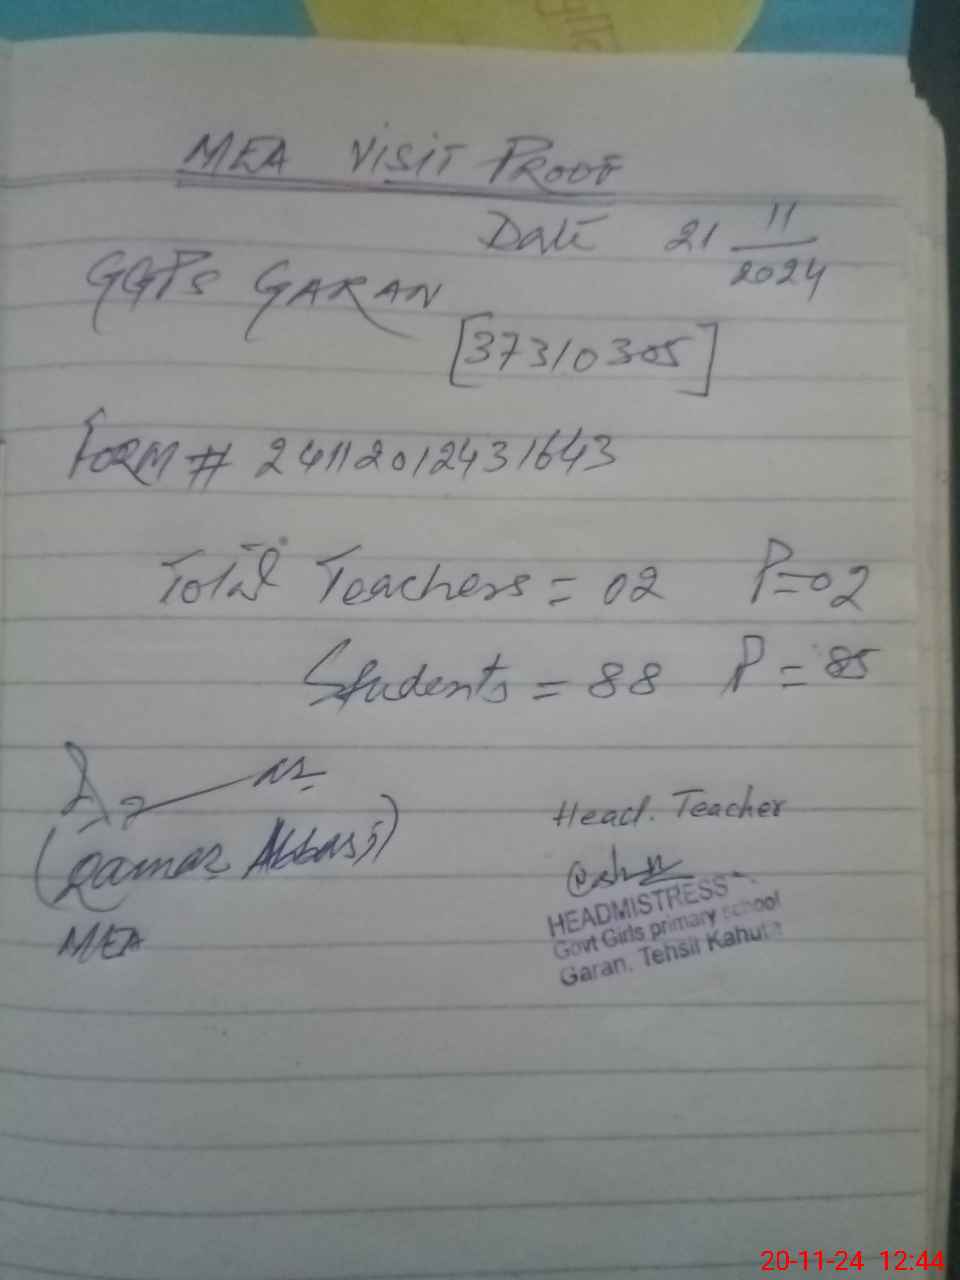 MEA VISIT PROOF
Date 21 11/2024
GGPS GARAN
[37310305]
FORM # 24112012431643
Total Teachers = 02 P=02
Students = 88 P = 85
(Qamar Abbasi)
MEA
Head. Teacher
HEADMISTRESS
Govt Girls primary school
Garan. Tehsil Kahuta
20-11-24 12:44